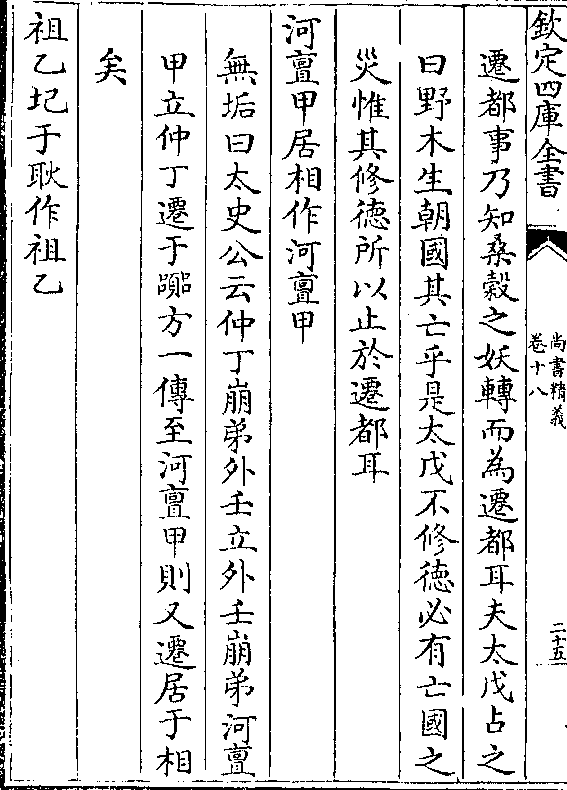 欽定四庫全書
尚書精義
卷十八
二十五
遷都事乃知桑穀之妖轉而為遷都耳夫太戊占之
曰野木生朝國其亡乎是太戊不修徳必有亡國之
災惟其修徳所以止於遷都耳
河亶甲居相作河亶甲
無垢曰太史公云仲丁崩弟外壬立外壬崩弟河亶
甲立仲丁遷于嚻方一傳至河亶甲則又遷居于相
矣
祖乙圮于耿作祖乙